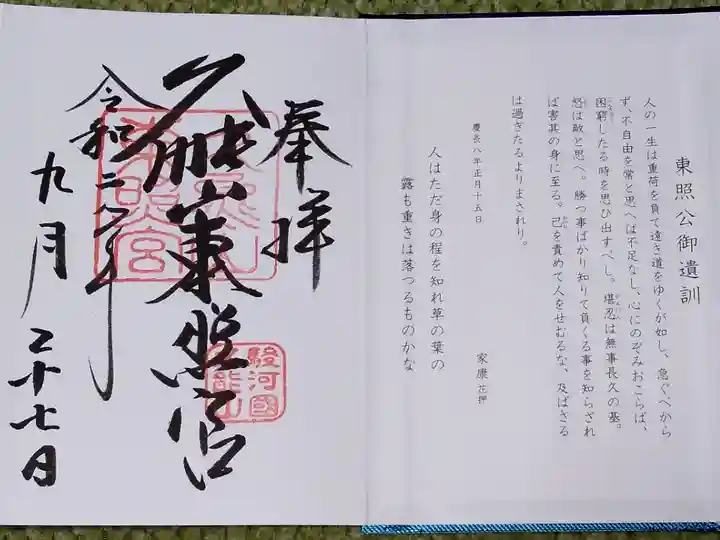 東照公御遺訓
人の一生は重荷を負て遠き道をゆくが如し、急ぐべから
ず、不自由を常と思へば不足なし、心にのぞみおこらば、
困窮したる時を思ひ出すべし。堪忍は無事長久の基。
怒は敵と思へ。勝つ事ばかり知りて負くる事を知らざれ
ば害其の身に至る。己を責めて人をせむるな、及ばざる
は過ぎたるよりまされり。
慶長八年正月十五日
家康 花押
人はただ身の程を知れ草の葉の
露も重きは落つるものかな
奉拝
久能山東照宮
令和二年
九月二十七日
東照宮
駿河國
久能山